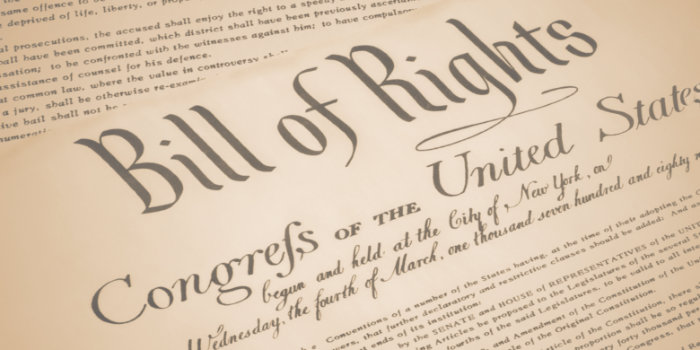 same offence to be
deprived of life, liberty, or prope
al prosecutions, the accused shall enjoy the right to a speedy
hall have been committed, which district shall have been previously ascertai
sation; to be confronted with the witnesses against him; to have compulso
assistance of counsel for his defence.
at common law, where the value in controversy sh
a jury, shall be otherwise re-exami
ive bail shall not be
numerati
Bill of Rights
Congreſs OF THE United States
begun and held at the City of New York, on
Wednesday, the fourth of March, one thousand seven hundred and eighty n
Conventions of a number of the States having, at the time of their adopting the C
wers, that further declaratory and restrictive clauses should be added: And as
ends of its institution:
by the SENATE and HOUSE of REPRESENTATIVES of the UNIT
ng Articles be proposed to the Legislatures of the several S
fourths of the said Legislatures, to be valid to all inte
and Amendment of the Constitution of the Uni
of the Original Constitution.
of the Constitution, there s
proportion shall be so re
forty thousand per